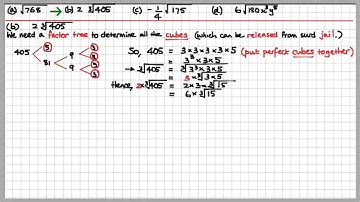 (a) √768 → (b) 2 ∛405 (c) -1/4 √175 (d) 6√180x³y⁵
(b) 2 ∛405
We need a factor tree to determine all the cubes (which can be released from surd jail.)
405 5 81 9 9 3 3 3 3
So, 405 = 3×3×3×3×5 (put perfect cubes together)
= 3³×3×5
→ ∛405 = ∛3³×3×5
= 3×∛3×5
Hence, 2×∛405 = 2×3×∛15
= 6×∛15